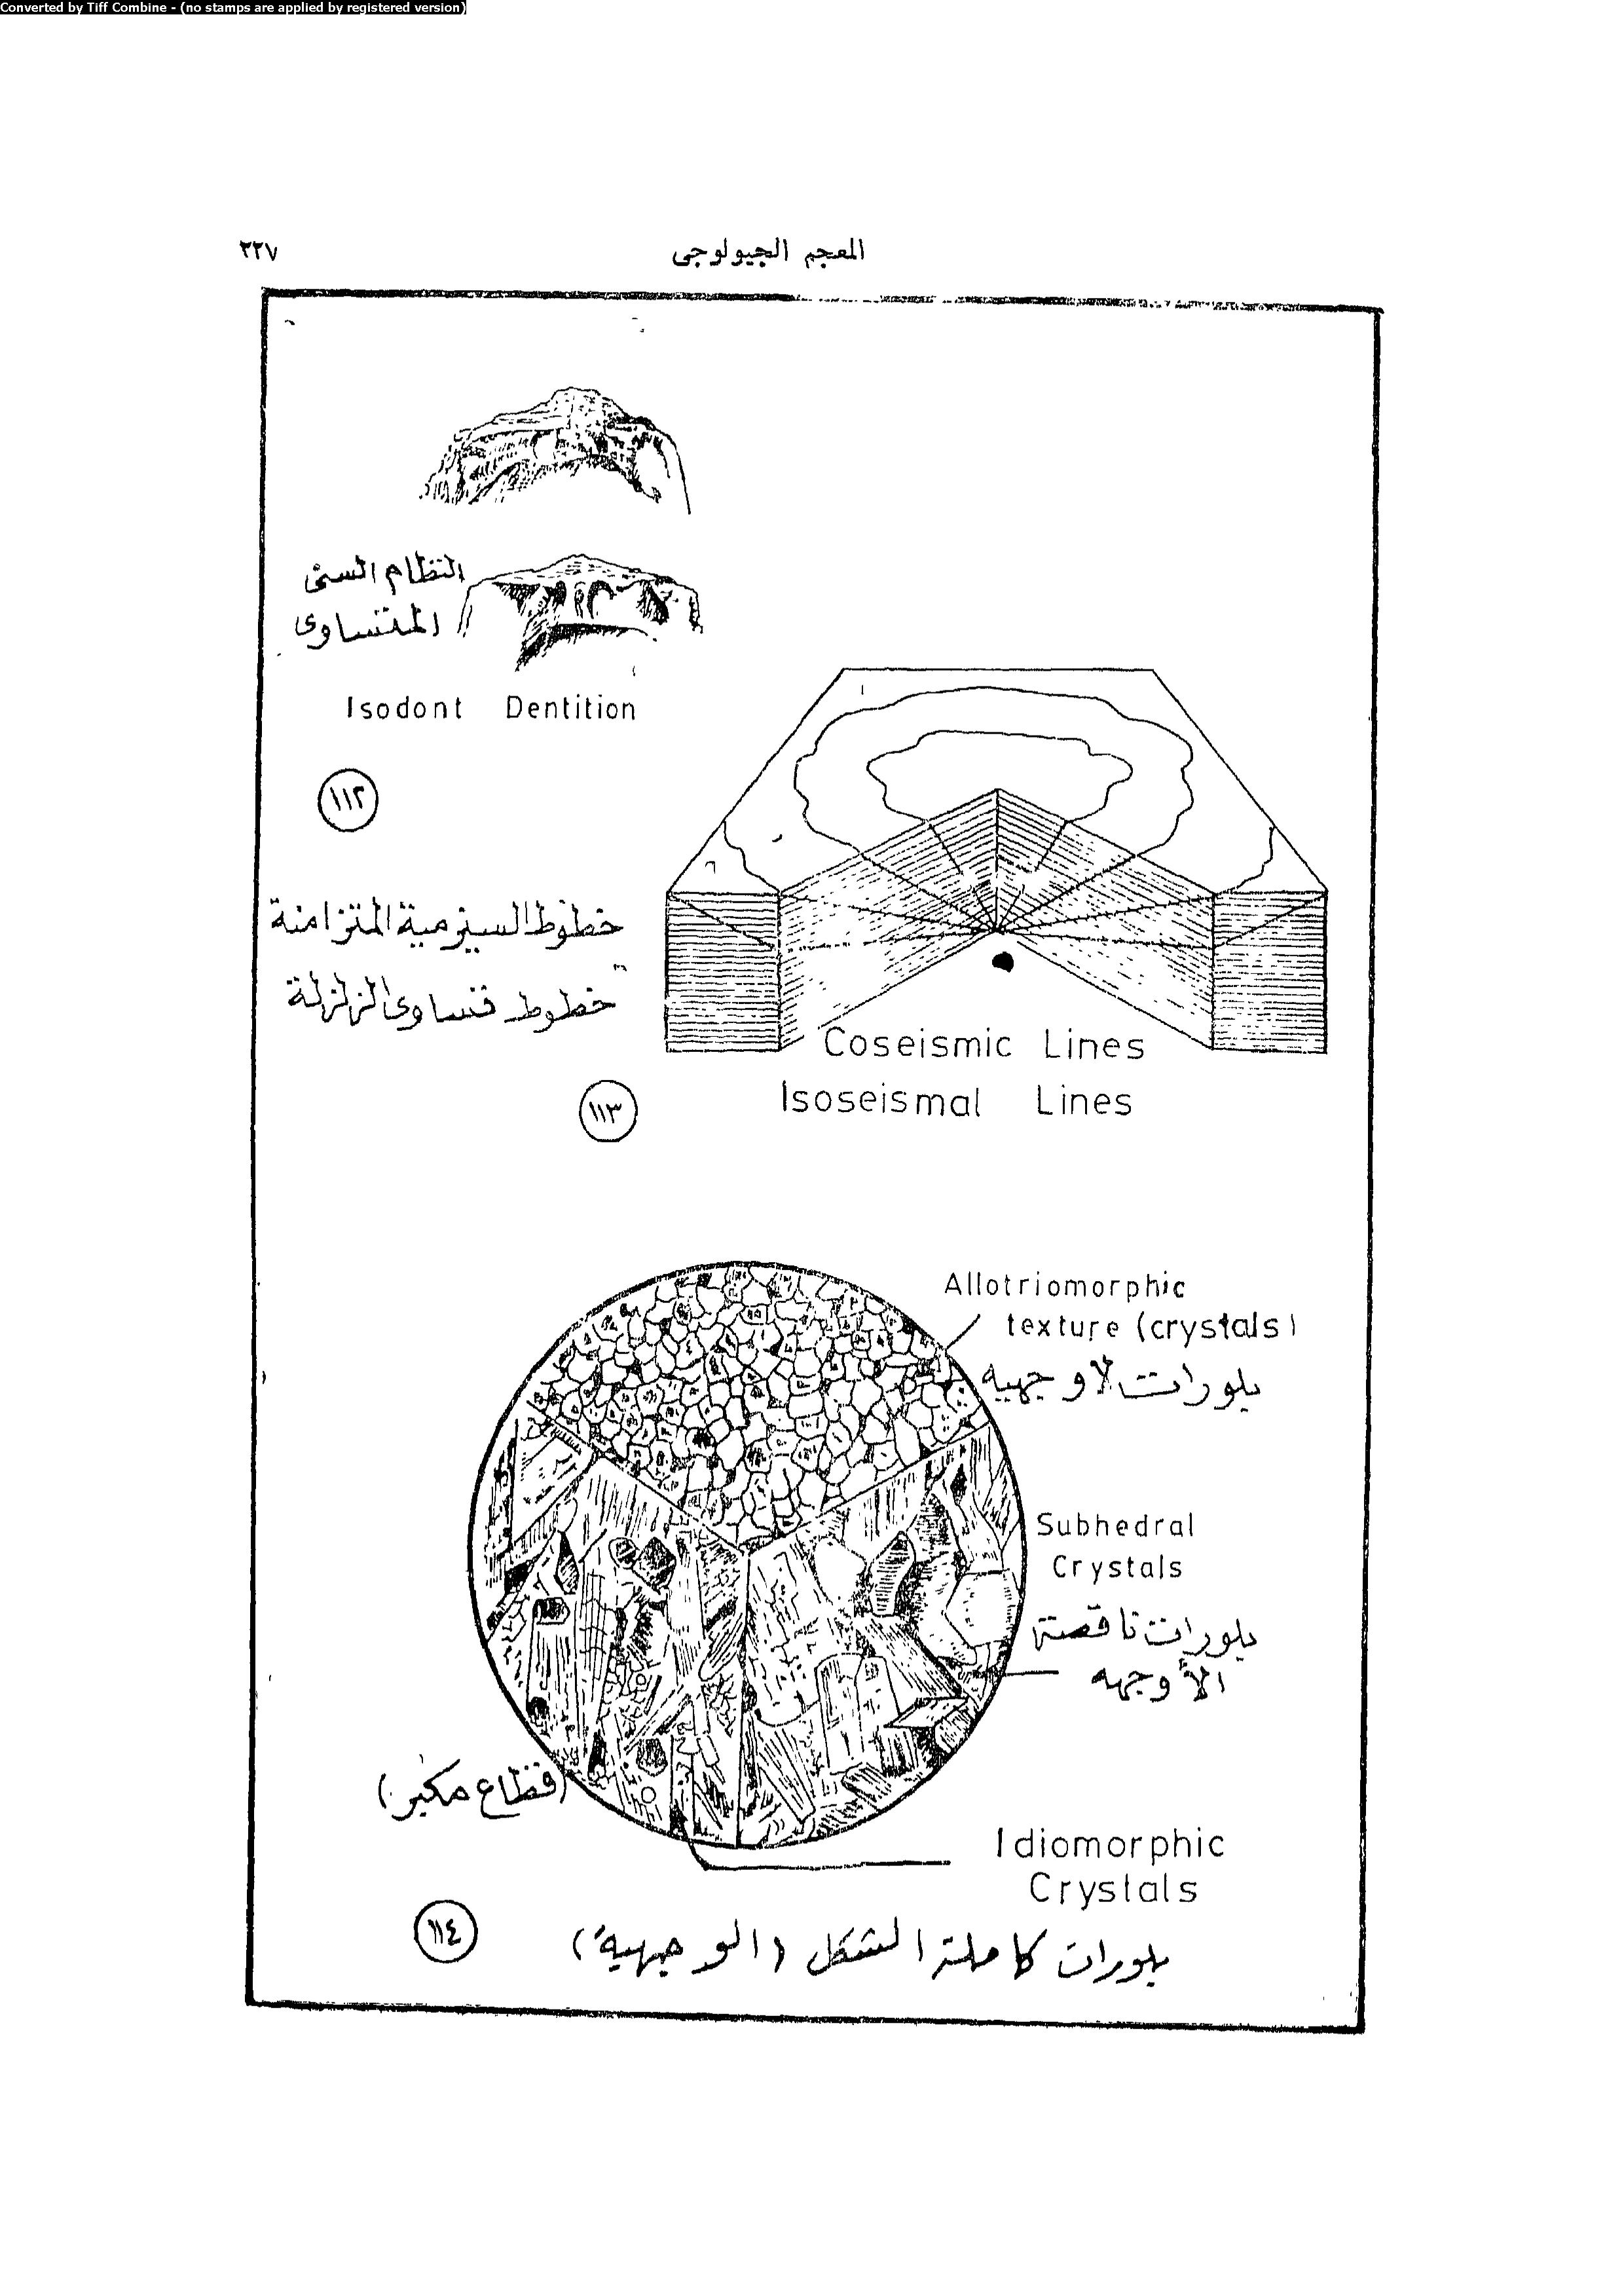 Converted by Tiff Combine - (no stamps are applied by registered version)
المعجم الجيولوجى
٢٢٧
النظام السنى
المتساوى
Isodont Dentition
١١٢
خطوط السيزمية المتزامنة
خطوط تساوى الزلزلة
Coseismic Lines
Isoseismal Lines
١١٣
Allotriomorphic
texture (crystals)
بلورات لا وجهية
Subhedral
Crystals
بلورات ناقصة
الأوجه
(قطاع مكبر)
Idiomorphic
Crystals
بلورات كاملة الشكل
١١٤